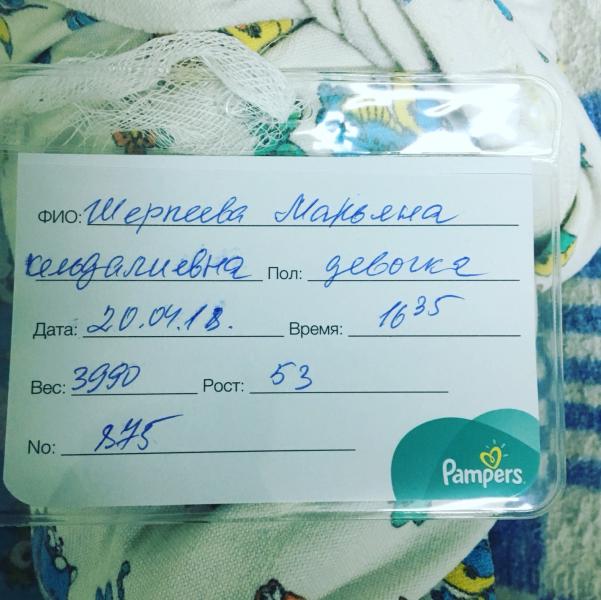 ФИО: Шерпеева Марьяна
кельдалиевна Пол: девочка
Дата: 20.04.18. Время: 16 35
Вес: 3990 Рост: 53
No: 875
Pampers